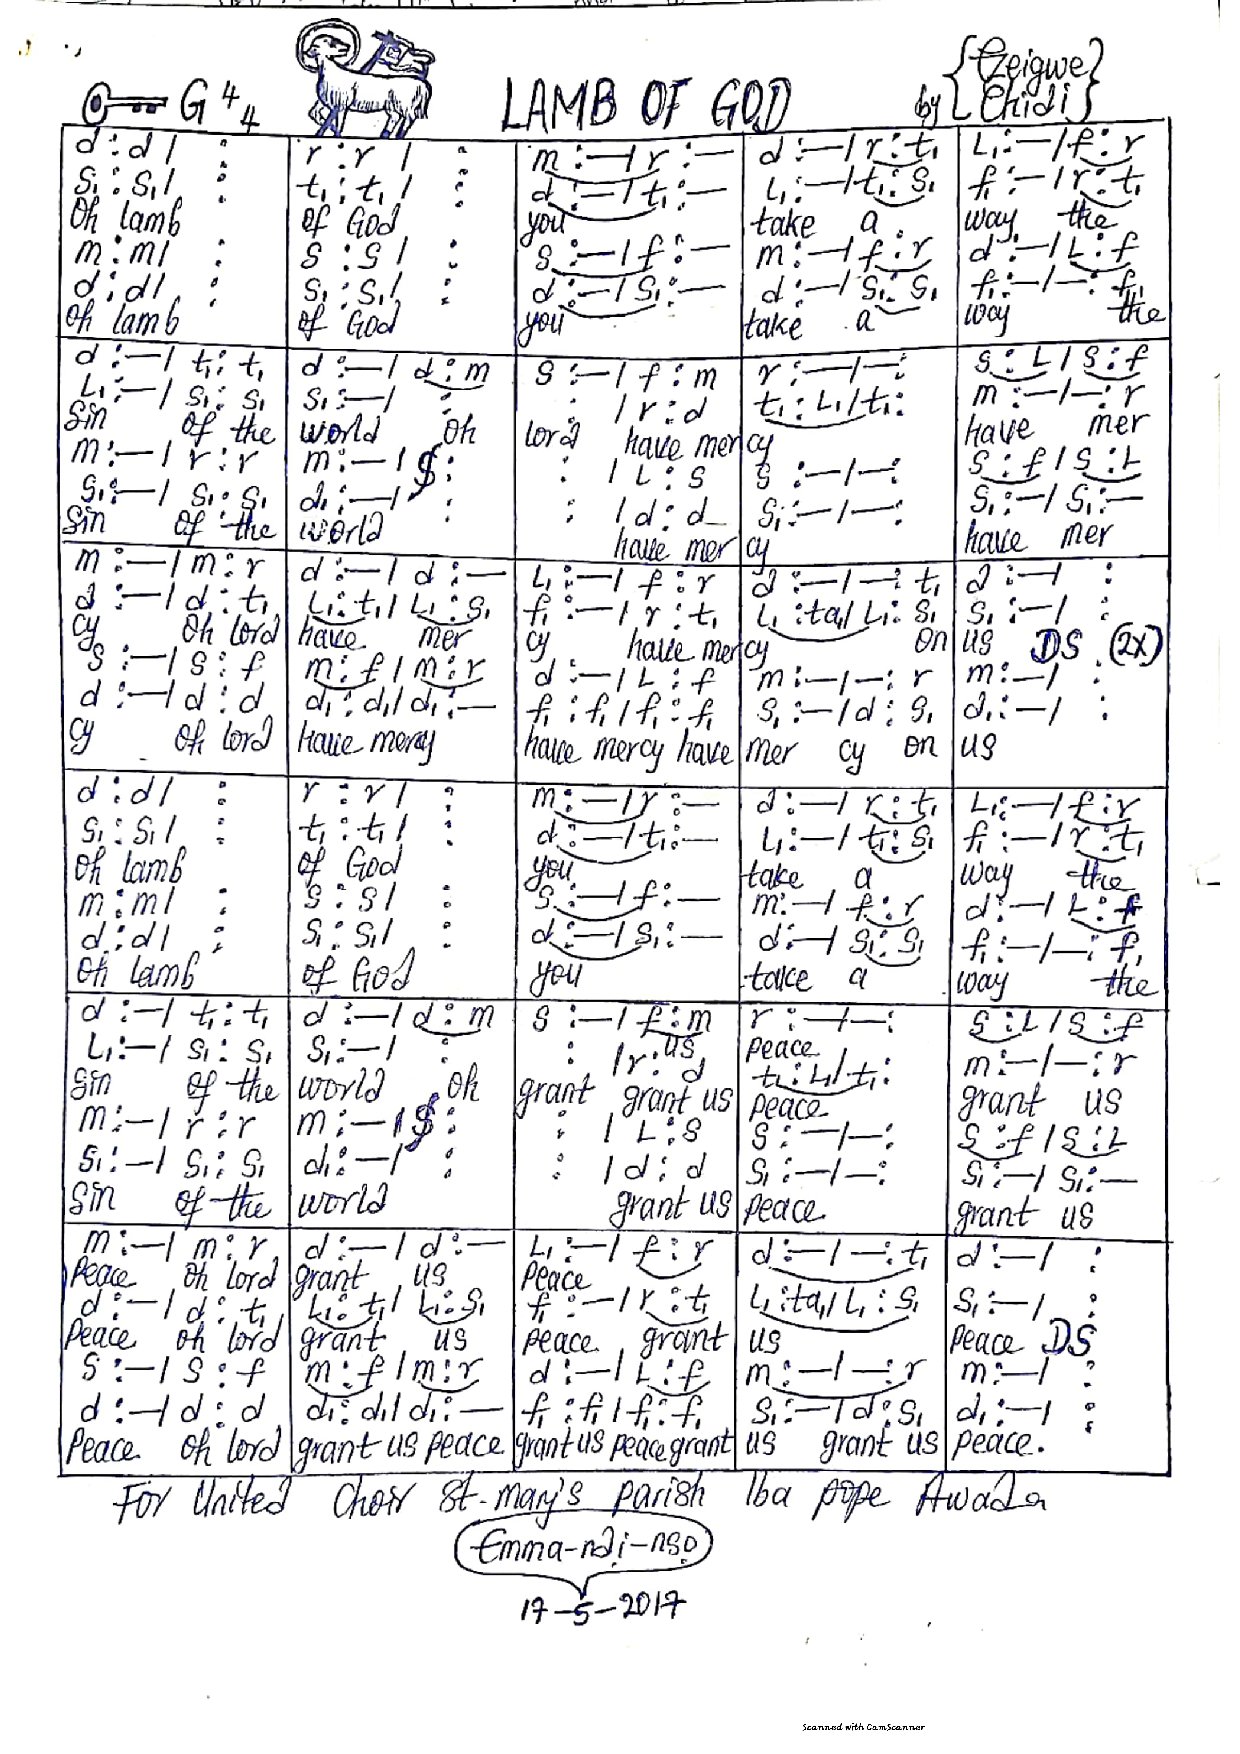 G 4/4 LAMB OF GOD by {Ezeigwe Chidi}
d : d / : | r : r / : | m : — / r : — | d : — / r : t₁ | L₁ : — / f : r
s₁ : s₁ / : | t₁ : t₁ / : | d : — / t₁ : — | L₁ : — / t₁ : s₁ | f₁ : — / r : t₁
Oh lamb | of God | you | take a | way the
m : m / : | s : s / : | s : — / f : — | m : — / f : r | d : — / L : f
d : d / : | s₁ : s₁ / : | d : — / s₁ : — | d : — / s₁ : s₁ | f₁ : — / — : f₁
Oh lamb | of God | you | take a | way the
d : — / t₁ : t₁ | d : — / d : m | s : — / f : m | r : — / — : | s : L / s : f
L₁ : — / s₁ : s₁ | s₁ : — / : | : / r : d | t₁ : L₁ / t₁ : | m : — / — : r
Sin of the | world oh | lord have mer | cy | have mer
m : — / r : r | m : — / $ : | : / L : s | s : — / — : | s : f / s : L
s₁ : — / s₁ : s₁ | d₁ : — / : | : / d : d | s₁ : — / — : | s₁ : — / s₁ : —
Sin of the | world | have mer | cy | have mer
m : — / m : r | d : — / d : — | L₁ : — / f : r | d : — / — : t₁ | d : — / :
d : — / d : t₁ | L₁ : t₁ / L₁ : s₁ | f₁ : — / r : t₁ | L₁ : ta₁ / L₁ : s₁ | s₁ : — / :
cy oh lord | have mer | cy have mer | cy on | us DS (2x)
s : — / s : f | m : f / m : r | d : — / L : f | m : — / — : r | m : — / :
d : — / d : d | d₁ : d₁ / d₁ : — | f₁ : f₁ / f₁ : f₁ | s₁ : — / d : s₁ | d₁ : — / :
cy oh lord | have mercy | have mercy have | mer cy on | us
d : d / : | r : r / : | m : — / r : — | d : — / r : t₁ | L₁ : — / f : r
s₁ : s₁ / : | t₁ : t₁ / : | d : — / t₁ : — | L₁ : — / t₁ : s₁ | f₁ : — / r : t₁
Oh lamb | of God | you | take a | way the
m : m / : | s : s / : | s : — / f : — | m : — / f : r | d : — / L : f
d : d / : | s₁ : s₁ / : | d : — / s₁ : — | d : — / s₁ : s₁ | f₁ : — / — : f₁
Oh lamb | of God | you | take a | way the
d : — / t₁ : t₁ | d : — / d : m | s : — / f : m | r : — / — : | s : L / s : f
us | Peace
L₁ : — / s₁ : s₁ | s₁ : — / : | : / r : d | t₁ : L₁ / t₁ : | m : — / — : r
Sin of the | world oh | grant grant us | peace | grant us
m : — / r : r | m : — / $ : | : / L : s | s : — / — : | s : f / s : L
s₁ : — / s₁ : s₁ | d₁ : — / : | : / d : d | s₁ : — / — : | s₁ : — / s₁ : —
Sin of the | world | grant us | peace | grant us
m : — / m : r | d : — / d : — | L₁ : — / f : r | d : — / — : t₁ | d : — / :
Peace oh lord | grant us | Peace
d : — / d : t₁ | L₁ : t₁ / L₁ : s₁ | f₁ : — / r : t₁ | L₁ : ta₁ / L₁ : s₁ | s₁ : — / :
Peace oh lord | grant us | peace grant | us | Peace DS
s : — / s : f | m : f / m : r | d : — / L : f | m : — / — : r | m : — / :
d : — / d : d | d₁ : d₁ / d₁ : — | f₁ : f₁ / f₁ : f₁ | s₁ : — / d : s₁ | d₁ : — / :
Peace oh lord | grant us peace | grant us peace grant | us grant us | peace.
For United Choir St. Mary's parish Iba pope Awada
Emma-ndị-nsọ
17-5-2017
Scanned with CamScanner